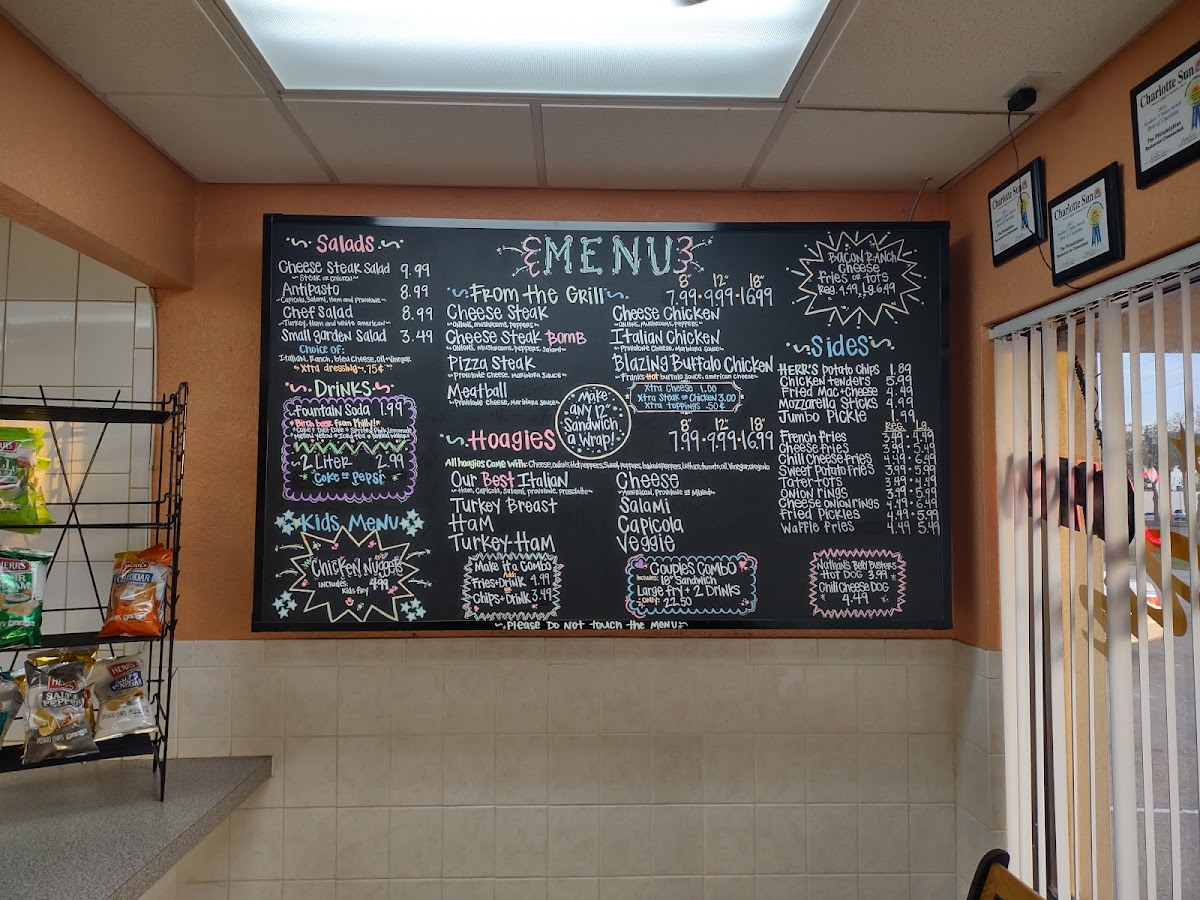 MENU
Salads
Cheese Steak Salad 9.99
~Steak or Chicken~
Antipasto 8.99
~Capicola, Salami, Ham and Provolone~
Chef Salad 8.99
~Turkey, Ham and white american~
Small garden Salad 3.49
Choice of:
Italian, Ranch, bleu cheese, oil + vinegar
~xtra dressing~ .75¢
DRINKS
Fountain Soda 1.99
*Birch beer From Philly!*
2 Liter 2.99
Coke or Pepsi
Kids Menu
Chicken Nuggets
includes: 4.99
Kids Fry
From the Grill
8" 12" 18"
7.99 • 9.99 • 16.99
Cheese Steak
~Onions, Mushrooms, Peppers~
Cheese Steak Bomb
~Onions, Mushrooms, Peppers, Salami~
Pizza Steak
~Provolone Cheese, Marinara Sauce~
Meatball
~Provolone Cheese, Marinara Sauce~
Cheese Chicken
~Onions, Mushrooms, Peppers~
Italian Chicken
~Provolone Cheese, Marinara Sauce~
Blazing Buffalo Chicken
~Franks Hot buffalo sauce, american cheese~
Xtra Cheese 1.00
Xtra Steak or Chicken 3.00
Xtra Toppings .50¢
Make
any 12"
Sandwich
a Wrap!
Hoagies
8" 12" 18"
7.99 • 9.99 • 16.99
All hoagies come with:
Our Best Italian
~Ham, Capicola, Salami, Provolone, Prosciutto~
Turkey Breast
Ham
Turkey-Ham
Cheese
~American, Provolone or Mixed~
Salami
Capicola
Veggie
Make it a Combo
Add:
Fries+Drink 4.99
or
Chips+Drink 3.49
Couples Combo
includes: 18" Sandwich
Large fry + 2 Drinks
~only: 22.50
~Please Do Not touch the Menu~
Bacon Ranch
Cheese
Fries or Tots
Reg. 4.49, Lg. 6.49
Sides
HERR'S Potato Chips 1.89
Chicken tenders 5.99
Fried Mac+Cheese 4.99
Mozzarella Sticks 4.99
Jumbo Pickle 1.99
Reg. Lg.
French fries 3.49 • 4.99
Cheese fries
Chili Cheese fries
Sweet Potato fries
Tater tots
Onion rings
Cheese onion rings
Fried Pickles 4.49 • 5.99
Waffle fries 4.49 5.49
Nathan's Belly Busters
Hot Dog 3.99
Chili Cheese Dog
4.49
Charlotte Sun
The Philadelphian
Charlotte Sun
Charlotte Sun
HERR'S
HERR'S
CHEDDAR
HERR'S
SALT &
PEPPER
POTATO CHIPS
HERR'S
VINEGAR